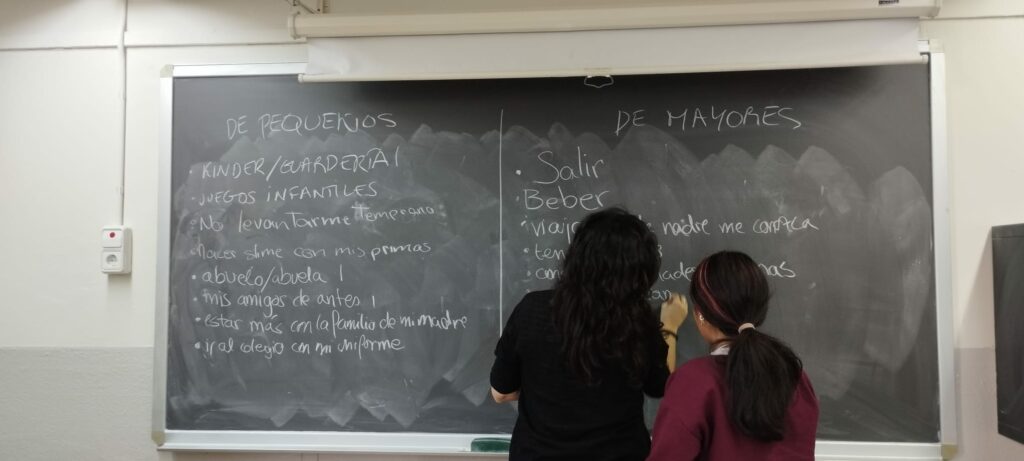 DE PEQUEÑOS
• KINDER/GUARDERÍA |
• JUEGOS INFANTILES
• No levantarme temprano
• hacer slime con mis primas
• abuelo/abuela |
• mis amigos de antes |
• estar más con la familia de mi madre
• ir al colegio con mi uniforme
DE MAYORES
• Salir
• Beber
• viaja nadie me conozca
• ten